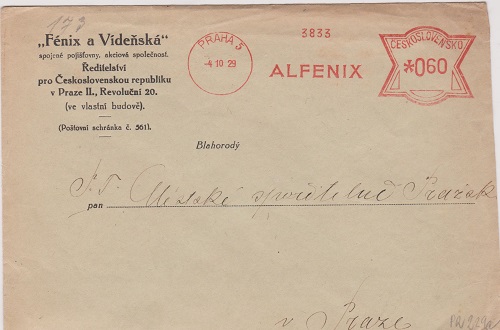 173
„Fénix a Vídeňská"
spojené pojišťovny, akciová společnost.
Ředitelství
pro Československou republiku
v Praze II., Revoluční 20.
(ve vlastní budově).
(Poštovní schránka č. 561).
PRAHA 3
-4.10 29
3833
ALFENIX
ČESKOSLOVENSKO
*060
Blahorodý
P.T. Městské spořitelně Pražsk
pan
v Praze